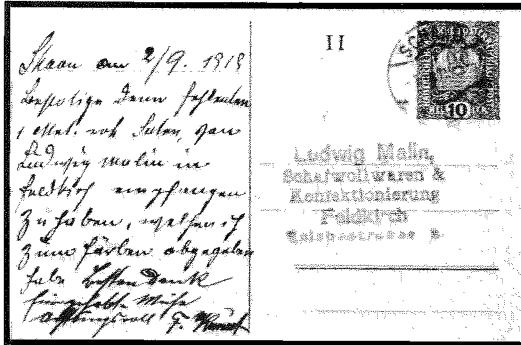 Schaan am 2/9. 1919
bestätige den fehlenden
1 Met. rot Futer, von
Ludwig Malin in
Feldkirch empfangen
zu haben, welchen ich
zum färben abgegeben
habe besten Dank
für gehabte Mühe
achtungsvoll F.
II
SCH
10
Ludwig Malin,
Schafwollwaren &
Konfektionierung
Feldkirch
Reichsstrasse